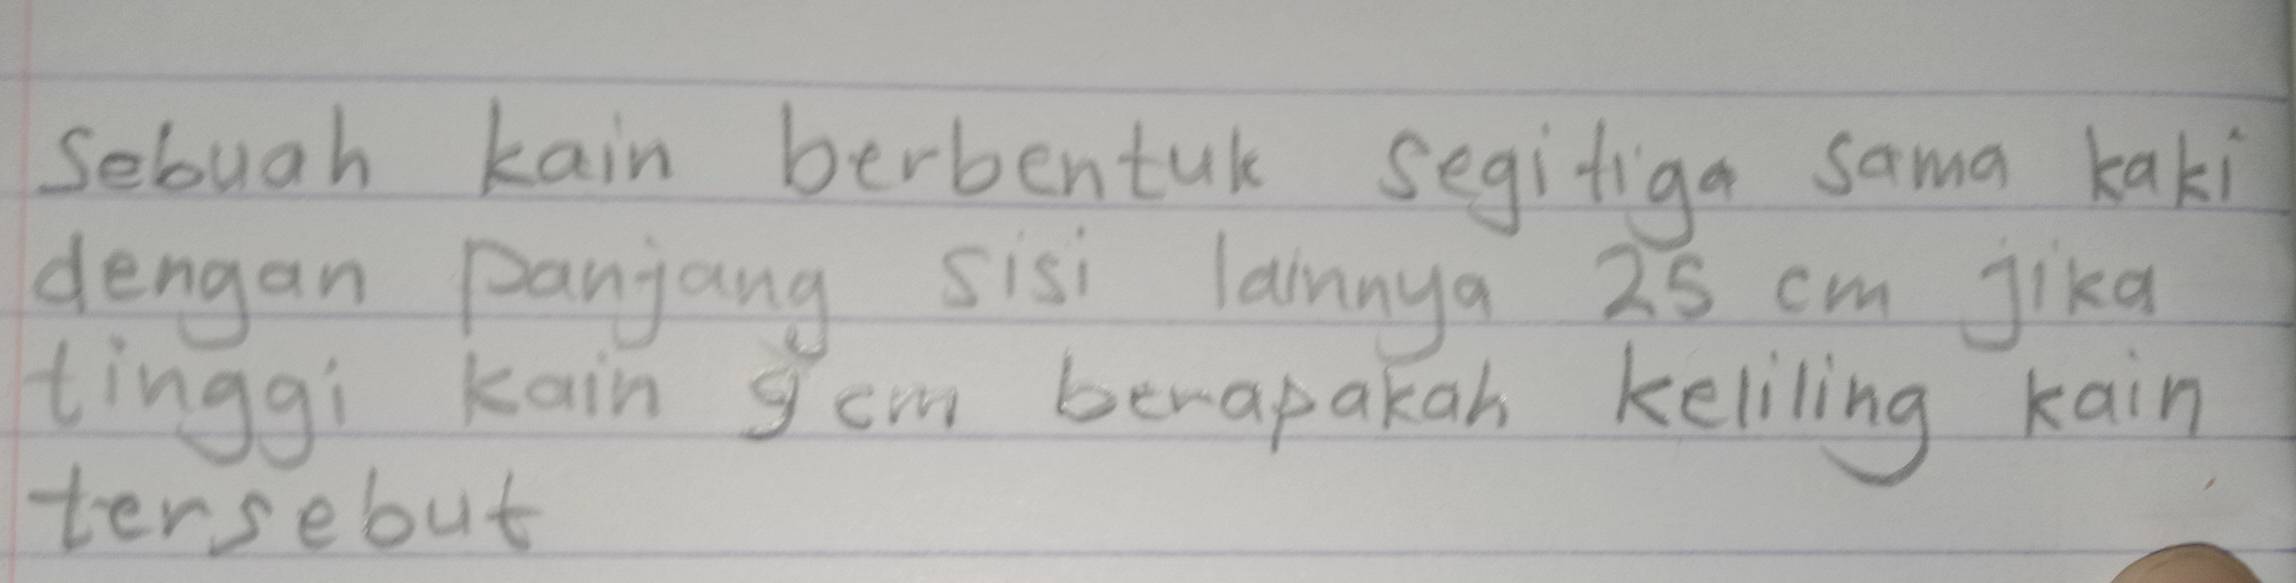 Sebuah kain berbentuk segitiga sama kaki
dengan panjang sisi lainnya 25 cm jika
tinggi kain 9 cm berapakah keliling kain
tersebut